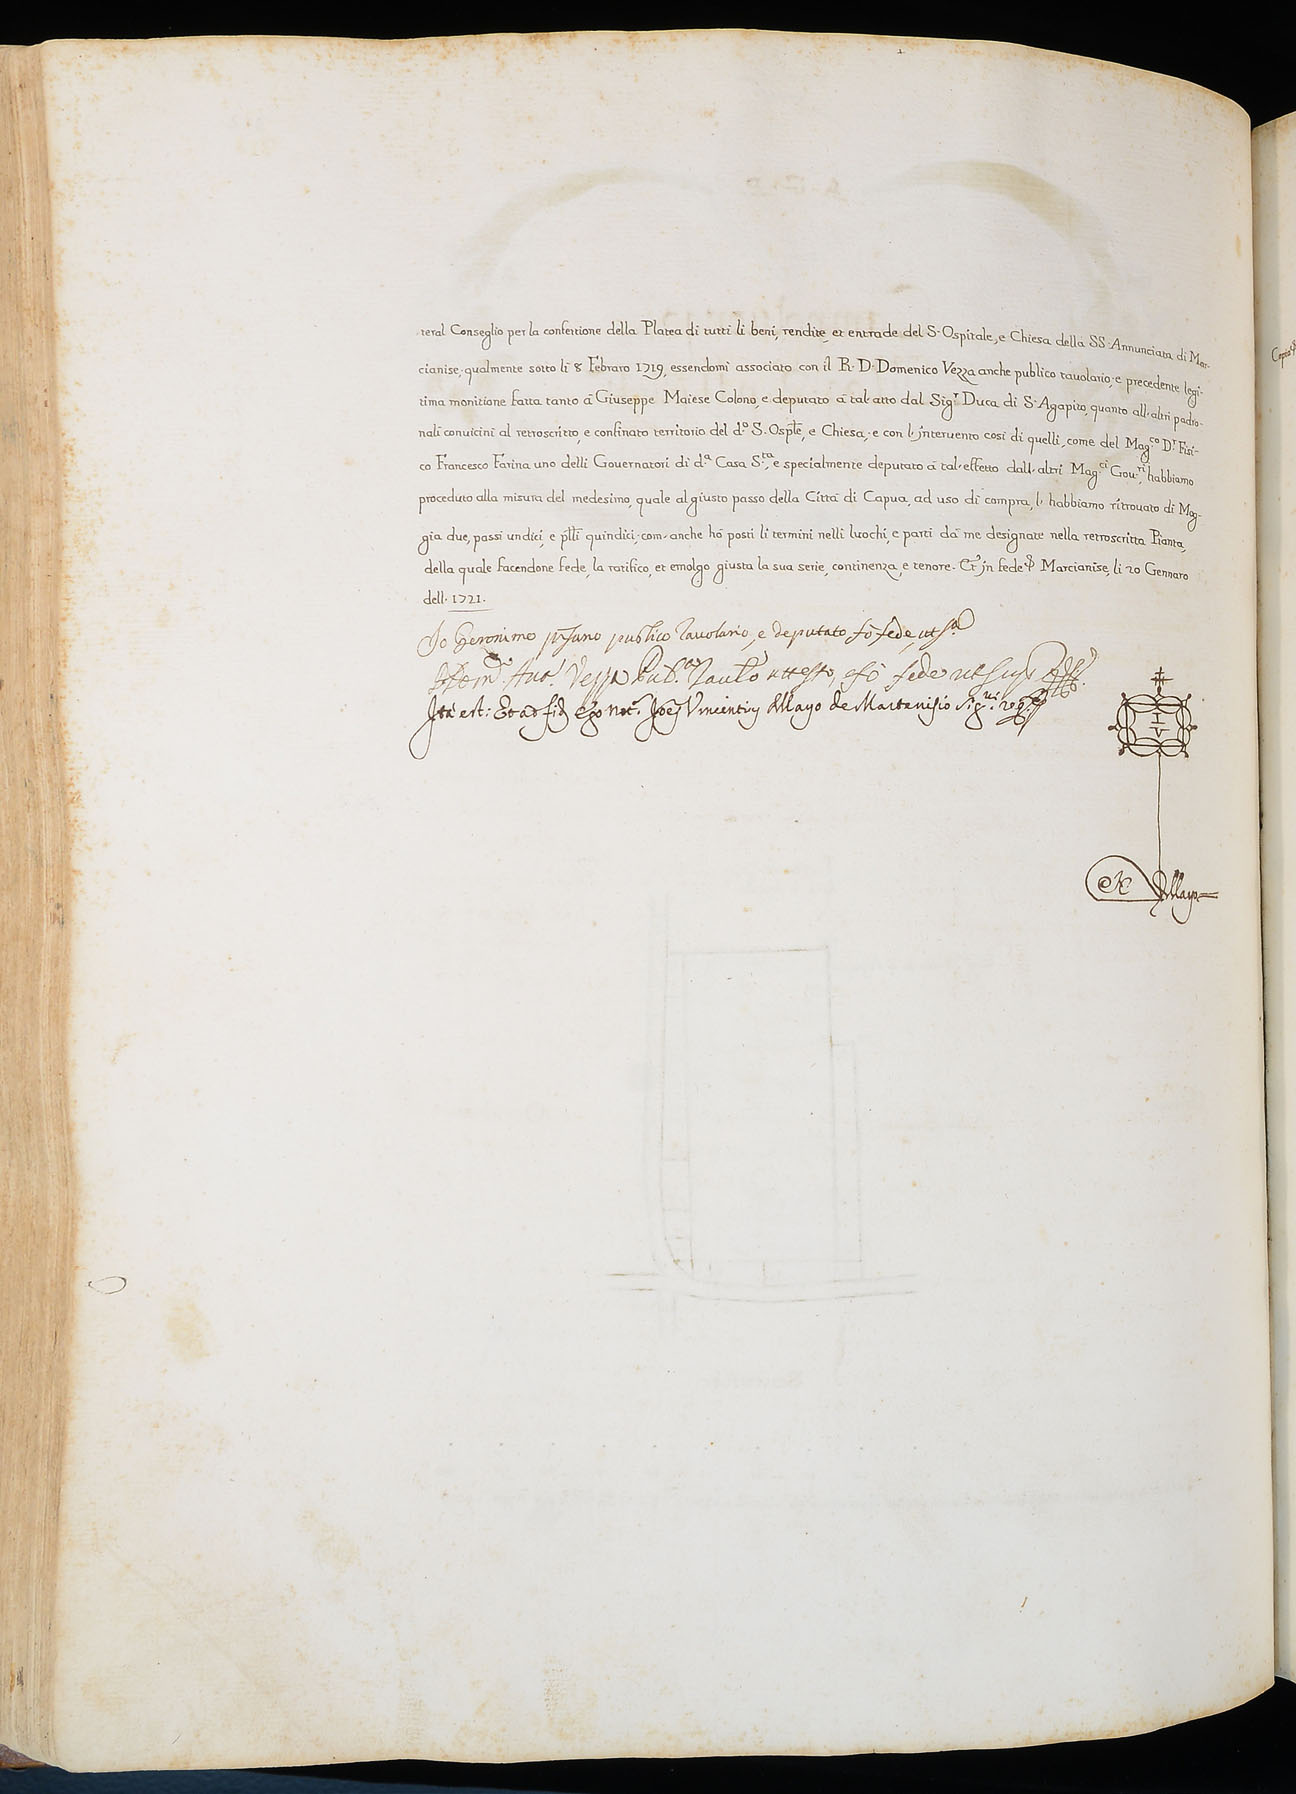 teral Conseglio per la confettione della Platea di tutti li beni, rendite, et entrade del S. Ospitale, e Chiesa della SS. Annunciata di Mar-
cianise, qualmente sotto li 8 Febraro 1719, essendomi associato con il R. D. Domenico Vezza anche publico tavolario, e precedente legi-
tima monitione fatta tanto à Giuseppe Maiese Colono, e deputato à tal' atto dal Sig.r Duca di S. Agapito, quanto all' altri padro-
nali convicini al retroscritto, e confinato territorio del d.o S. Ospłe, e Chiesa, e con l' jntervento così di quelli, come del Mag.co D.r Fisi-
co Francesco Farina uno delli Governatori di d.a Casa S.ta, e specialmente deputato à tal' effetto dall' altri Mag.ci Gov.ri, habbiamo
proceduto alla misura del medesimo, quale al giusto passo della Città di Capua, ad uso di compra, l' habbiamo ritrovato di Mog-
gia due, passi undici, e płłi quindici, com' anche hò posti li termini nelli luochi, e parti dà me designate nella retroscritta Pianta,
della quale facendone fede, la ratifico, et emolgo giusta la sua serie, continenza, e tenore. Et jn fede Marcianise, li 20 Gennaro
dell' 1721.
Io Geronimo publico Tavolario, e deputato fò fede, ut s.a
Vezza Pub.co attesto, e fò fede ut sup.
Ita est: Et ad fid. Ego Not.s Vincentius Mayo de Martenisio
I
V
N Mayo